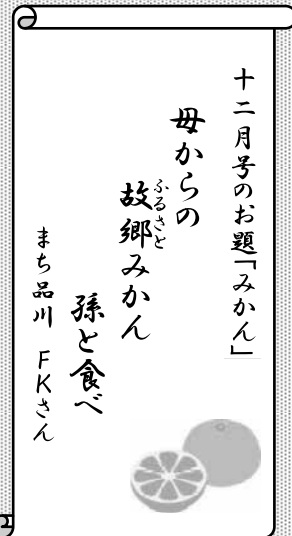 十二月号のお題「みかん」
母からの
故郷みかん
ふるさと
孫と食べ
まち品川 FKさん